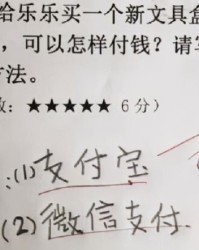 给乐乐买一个新文具盒
，可以怎样付钱？请写
方法。
数：★★★★★ 6 分）
：(1)支付宝
(2)微信支付